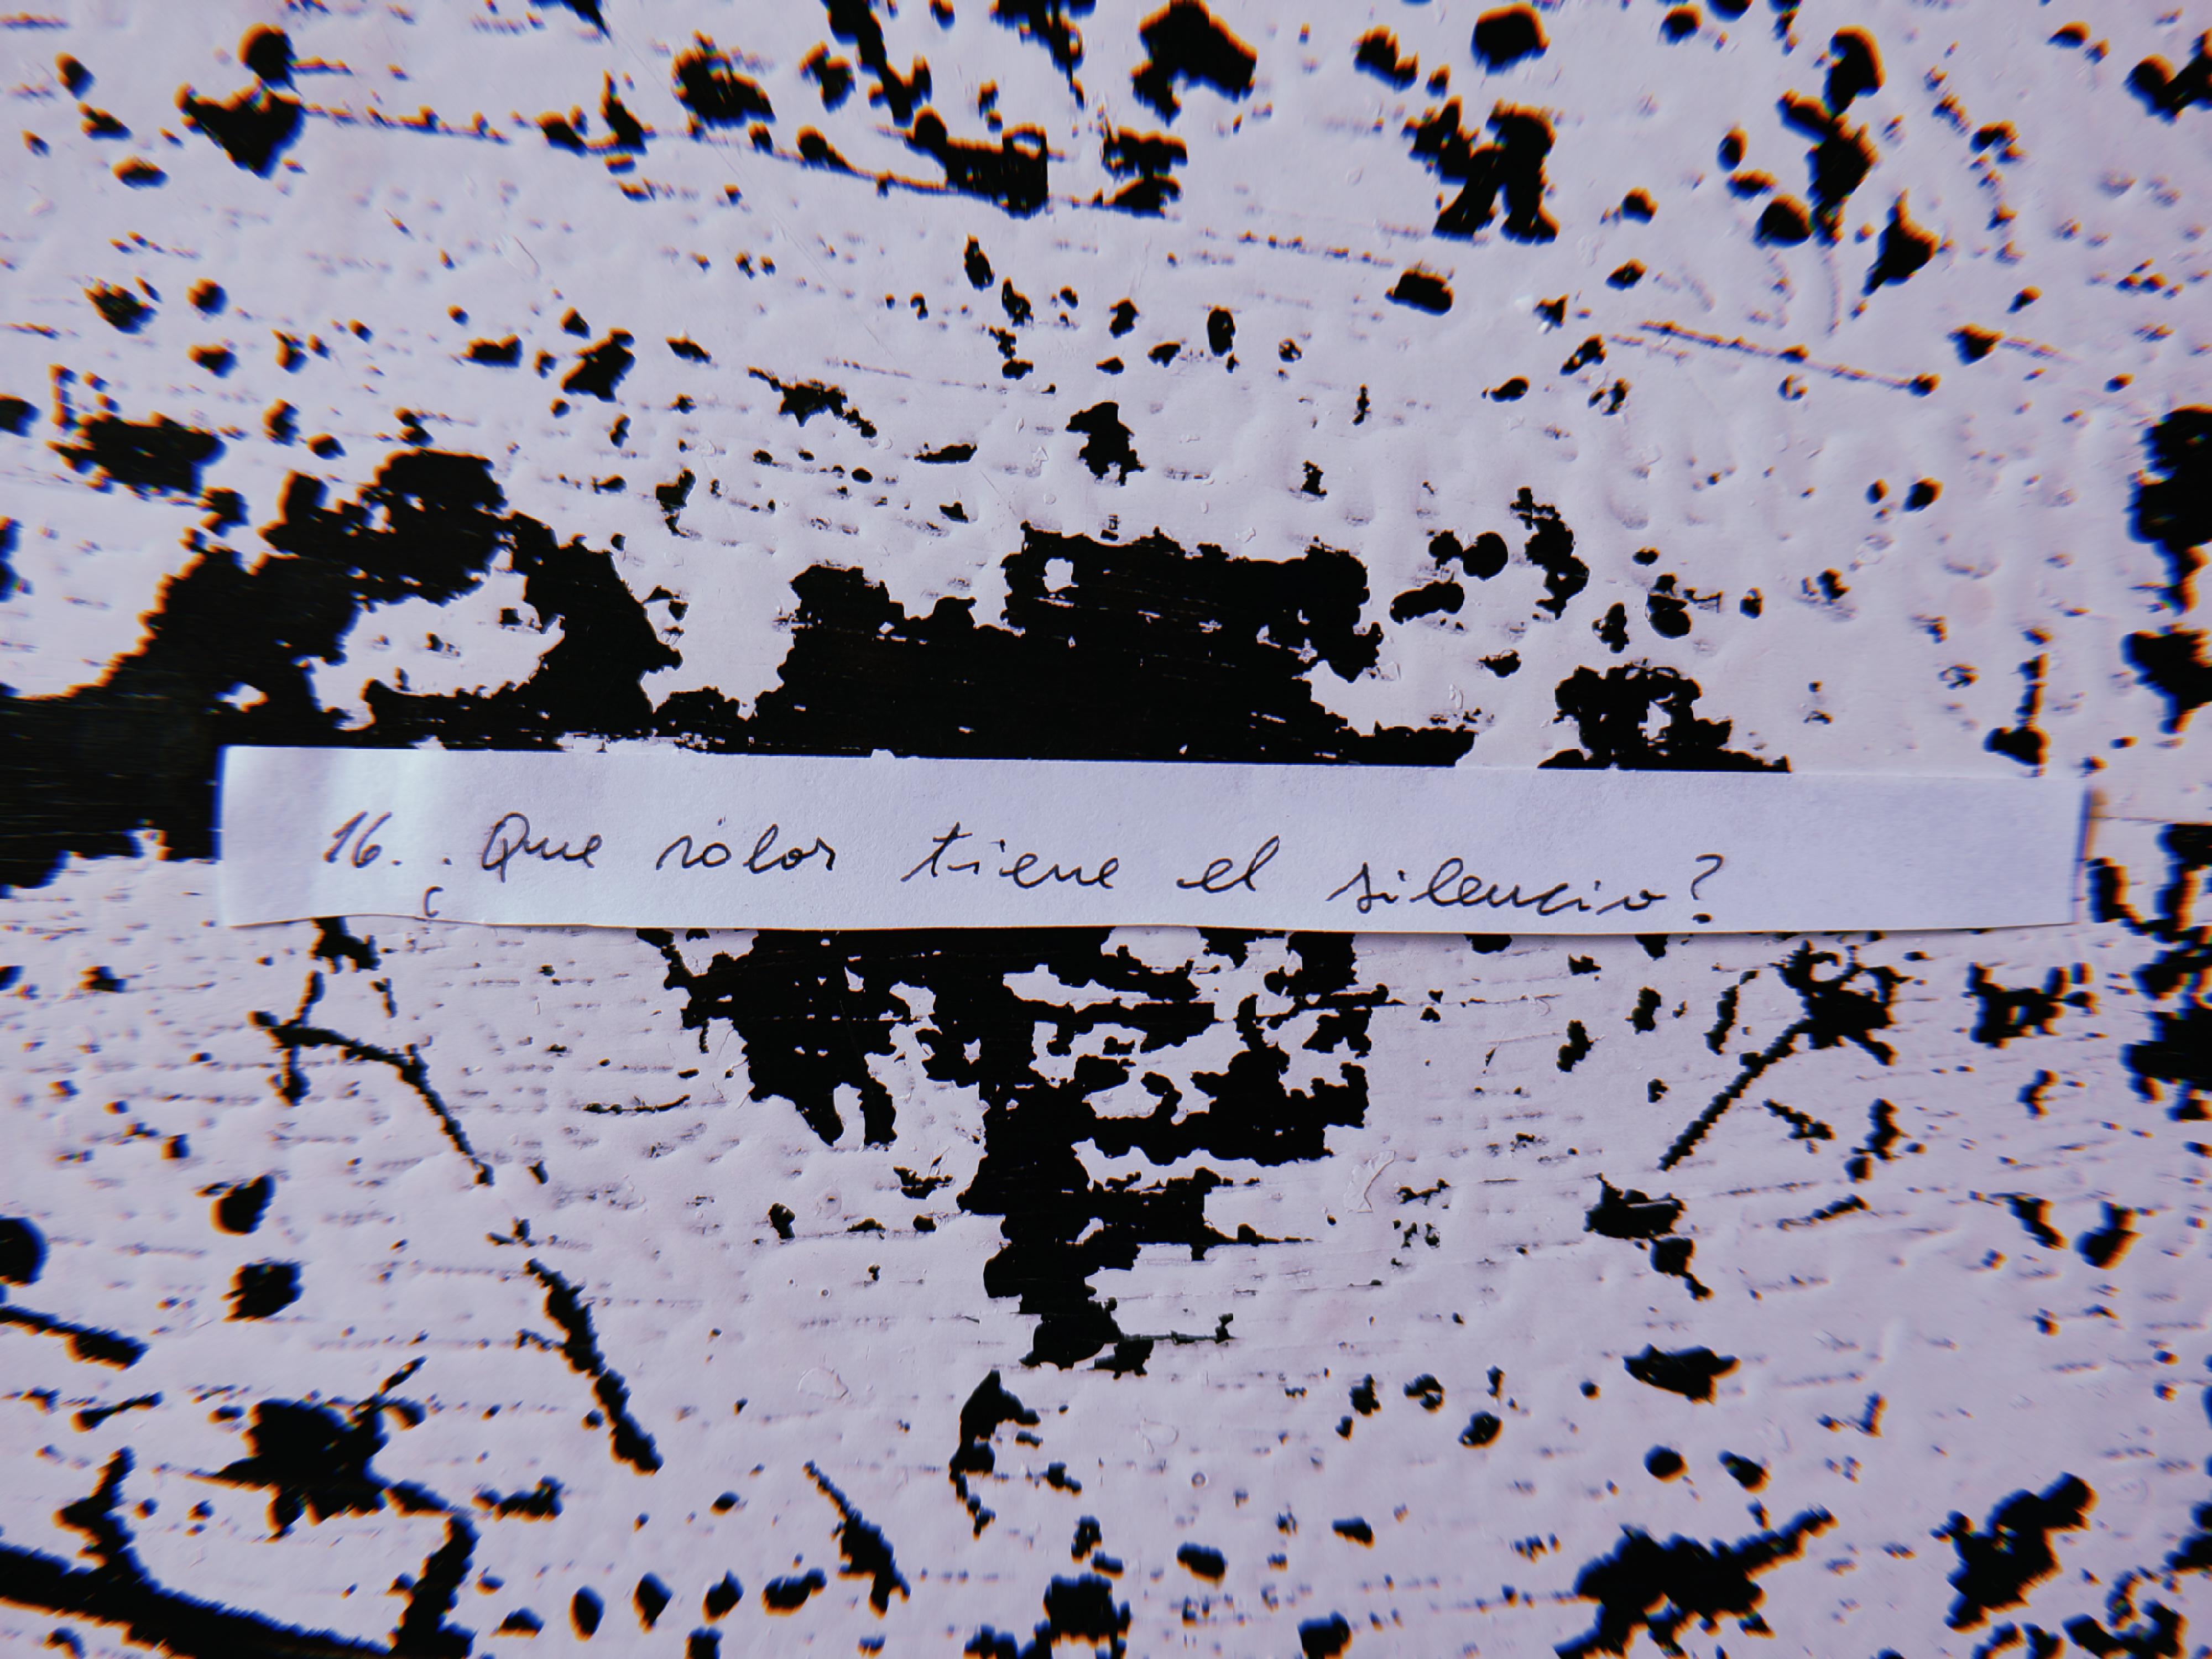 16. ¿Que color tiene el silencio?